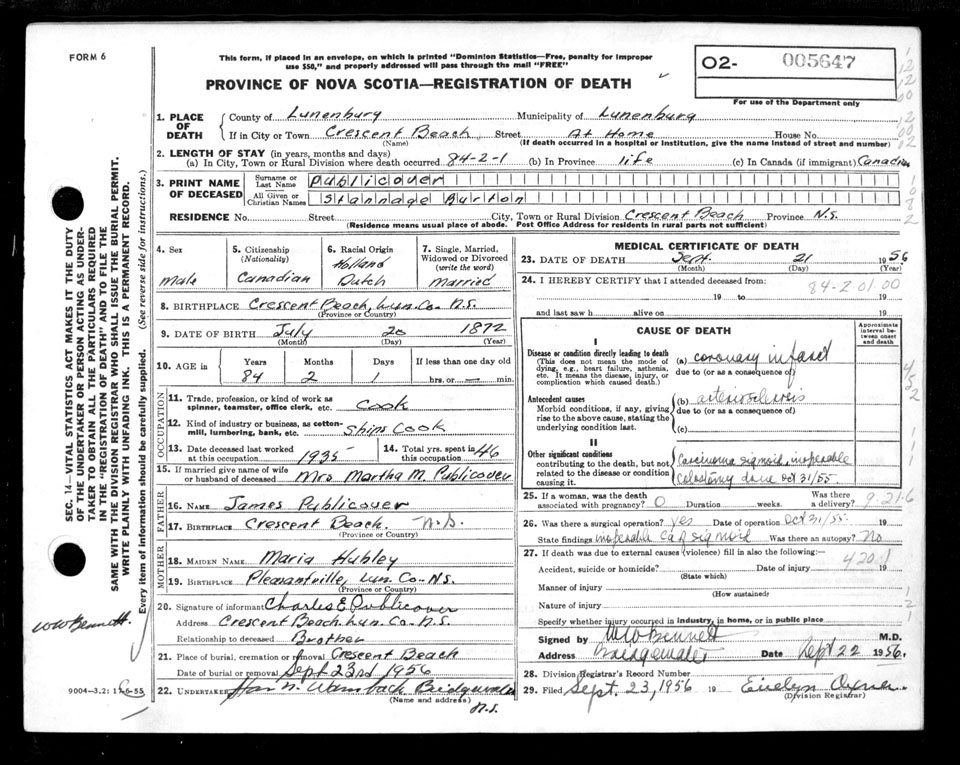 FORM 6
This form, if placed in an envelope, on which is printed "Dominion Statistics—Free, penalty for improper
use $50," and properly addressed will pass through the mail "FREE"
PROVINCE OF NOVA SCOTIA—REGISTRATION OF DEATH
O2- 005647
For use of the Department only
1. PLACE OF DEATH
County of Lunenburg Municipality of Lunenburg
If in City or Town Crescent Beach Street At Home House No.
(Name) (If death occurred in a hospital or institution, give the name instead of street and number)
2. LENGTH OF STAY (in years, months and days)
(a) In City, Town or Rural Division where death occurred 84-2-1 (b) In Province life (c) In Canada (if immigrant) Canadian
3. PRINT NAME OF DECEASED
Surname or Last Name Publicover
All Given or Christian Names Stannage Burton
RESIDENCE No. Street City, Town or Rural Division Crescent Beach Province N.S.
(Residence means usual place of abode. Post Office Address for residents in rural parts not sufficient)
4. Sex
Male
5. Citizenship
(Nationality)
Canadian
6. Racial Origin
Holland
Dutch
7. Single, Married,
Widowed or Divorced
(write the word)
Married
8. BIRTHPLACE Crescent Beach, Lun. Co. N.S.
(Province or Country)
9. DATE OF BIRTH July 20 1872
(Month) (Day) (Year)
10. AGE in
Years Months Days If less than one day old
84 2 1 hrs. or min.
OCCUPATION
11. Trade, profession, or kind of work as
spinner, teamster, office clerk, etc. Cook
12. Kind of industry or business, as cotton-
mill, lumbering, bank, etc. Ships Cook
13. Date deceased last worked
at this occupation 1935
14. Total yrs. spent in
this occupation 46
15. If married give name of wife
or husband of deceased Mrs Martha M. Publicover
FATHER
16. NAME James Publicover
17. BIRTHPLACE Crescent Beach. N.S.
(Province or Country)
MOTHER
18. MAIDEN NAME Maria Hubley
19. BIRTHPLACE Pleasantville, Lun. Co. N.S.
(Province or Country)
20. Signature of informant Charles E Publicover
Address Crescent Beach. Lun. Co. N.S.
Relationship to deceased Brother
21. Place of burial, cremation or removal Crescent Beach
Date of burial or removal Sept 23rd 1956
22. UNDERTAKER Bridgewater
(Name and address)
N.S.
MEDICAL CERTIFICATE OF DEATH
23. DATE OF DEATH Sept. 21 1956
(Month) (Day) (Year)
24. I HEREBY CERTIFY that I attended deceased from:
84-2 01.00
19 to 19
and last saw h alive on 19
CAUSE OF DEATH
Approximate
interval be-
tween onset
and death
I
Disease or condition directly leading to death
(This does not mean the mode of
dying, e.g., heart failure, asthenia,
etc. It means the disease, injury, or
complication which caused death.)
(a) coronary infarct
due to (or as a consequence of)
Antecedent causes
Morbid conditions, if any, giving
rise to the above cause, stating the
underlying condition last.
(b) arteriosclerosis
due to (or as a consequence of)
(c)
II
Other significant conditions
contributing to the death, but not
related to the disease or condition
causing it.
Carcinoma sigmoid, inoperable
Colostomy done Oct 31/55
25. If a woman, was the death
associated with pregnancy? O Duration weeks. Was there a delivery?
26. Was there a surgical operation? yes Date of operation Oct 31/55 19
State findings inoperable Ca of sigmoid Was there an autopsy? No
27. If death was due to external causes (violence) fill in also the following:—
420.1
Accident, suicide or homicide? Date of injury 19
(State which)
Manner of injury
(How sustained)
Nature of injury
Specify whether injury occurred in industry, in home, or in public place
Signed by W W Bennett M.D.
Address Bridgewater Date Sept 22 1956
28. Division Registrar's Record Number
29. Filed Sept. 23, 1956 19 Evelyn
(Division Registrar)
SEC. 14—VITAL STATISTICS ACT MAKES IT THE DUTY
OF THE UNDERTAKER OR PERSON ACTING AS UNDER-
TAKER TO OBTAIN ALL THE PARTICULARS REQUIRED
IN THE "REGISTRATION OF DEATH" AND TO FILE THE
SAME WITH THE DIVISION REGISTRAR WHO SHALL ISSUE THE BURIAL PERMIT.
WRITE PLAINLY WITH UNFADING INK. THIS IS A PERMANENT RECORD.
Every item of information should be carefully supplied. (See reverse side for instructions.)
WW Bennett.